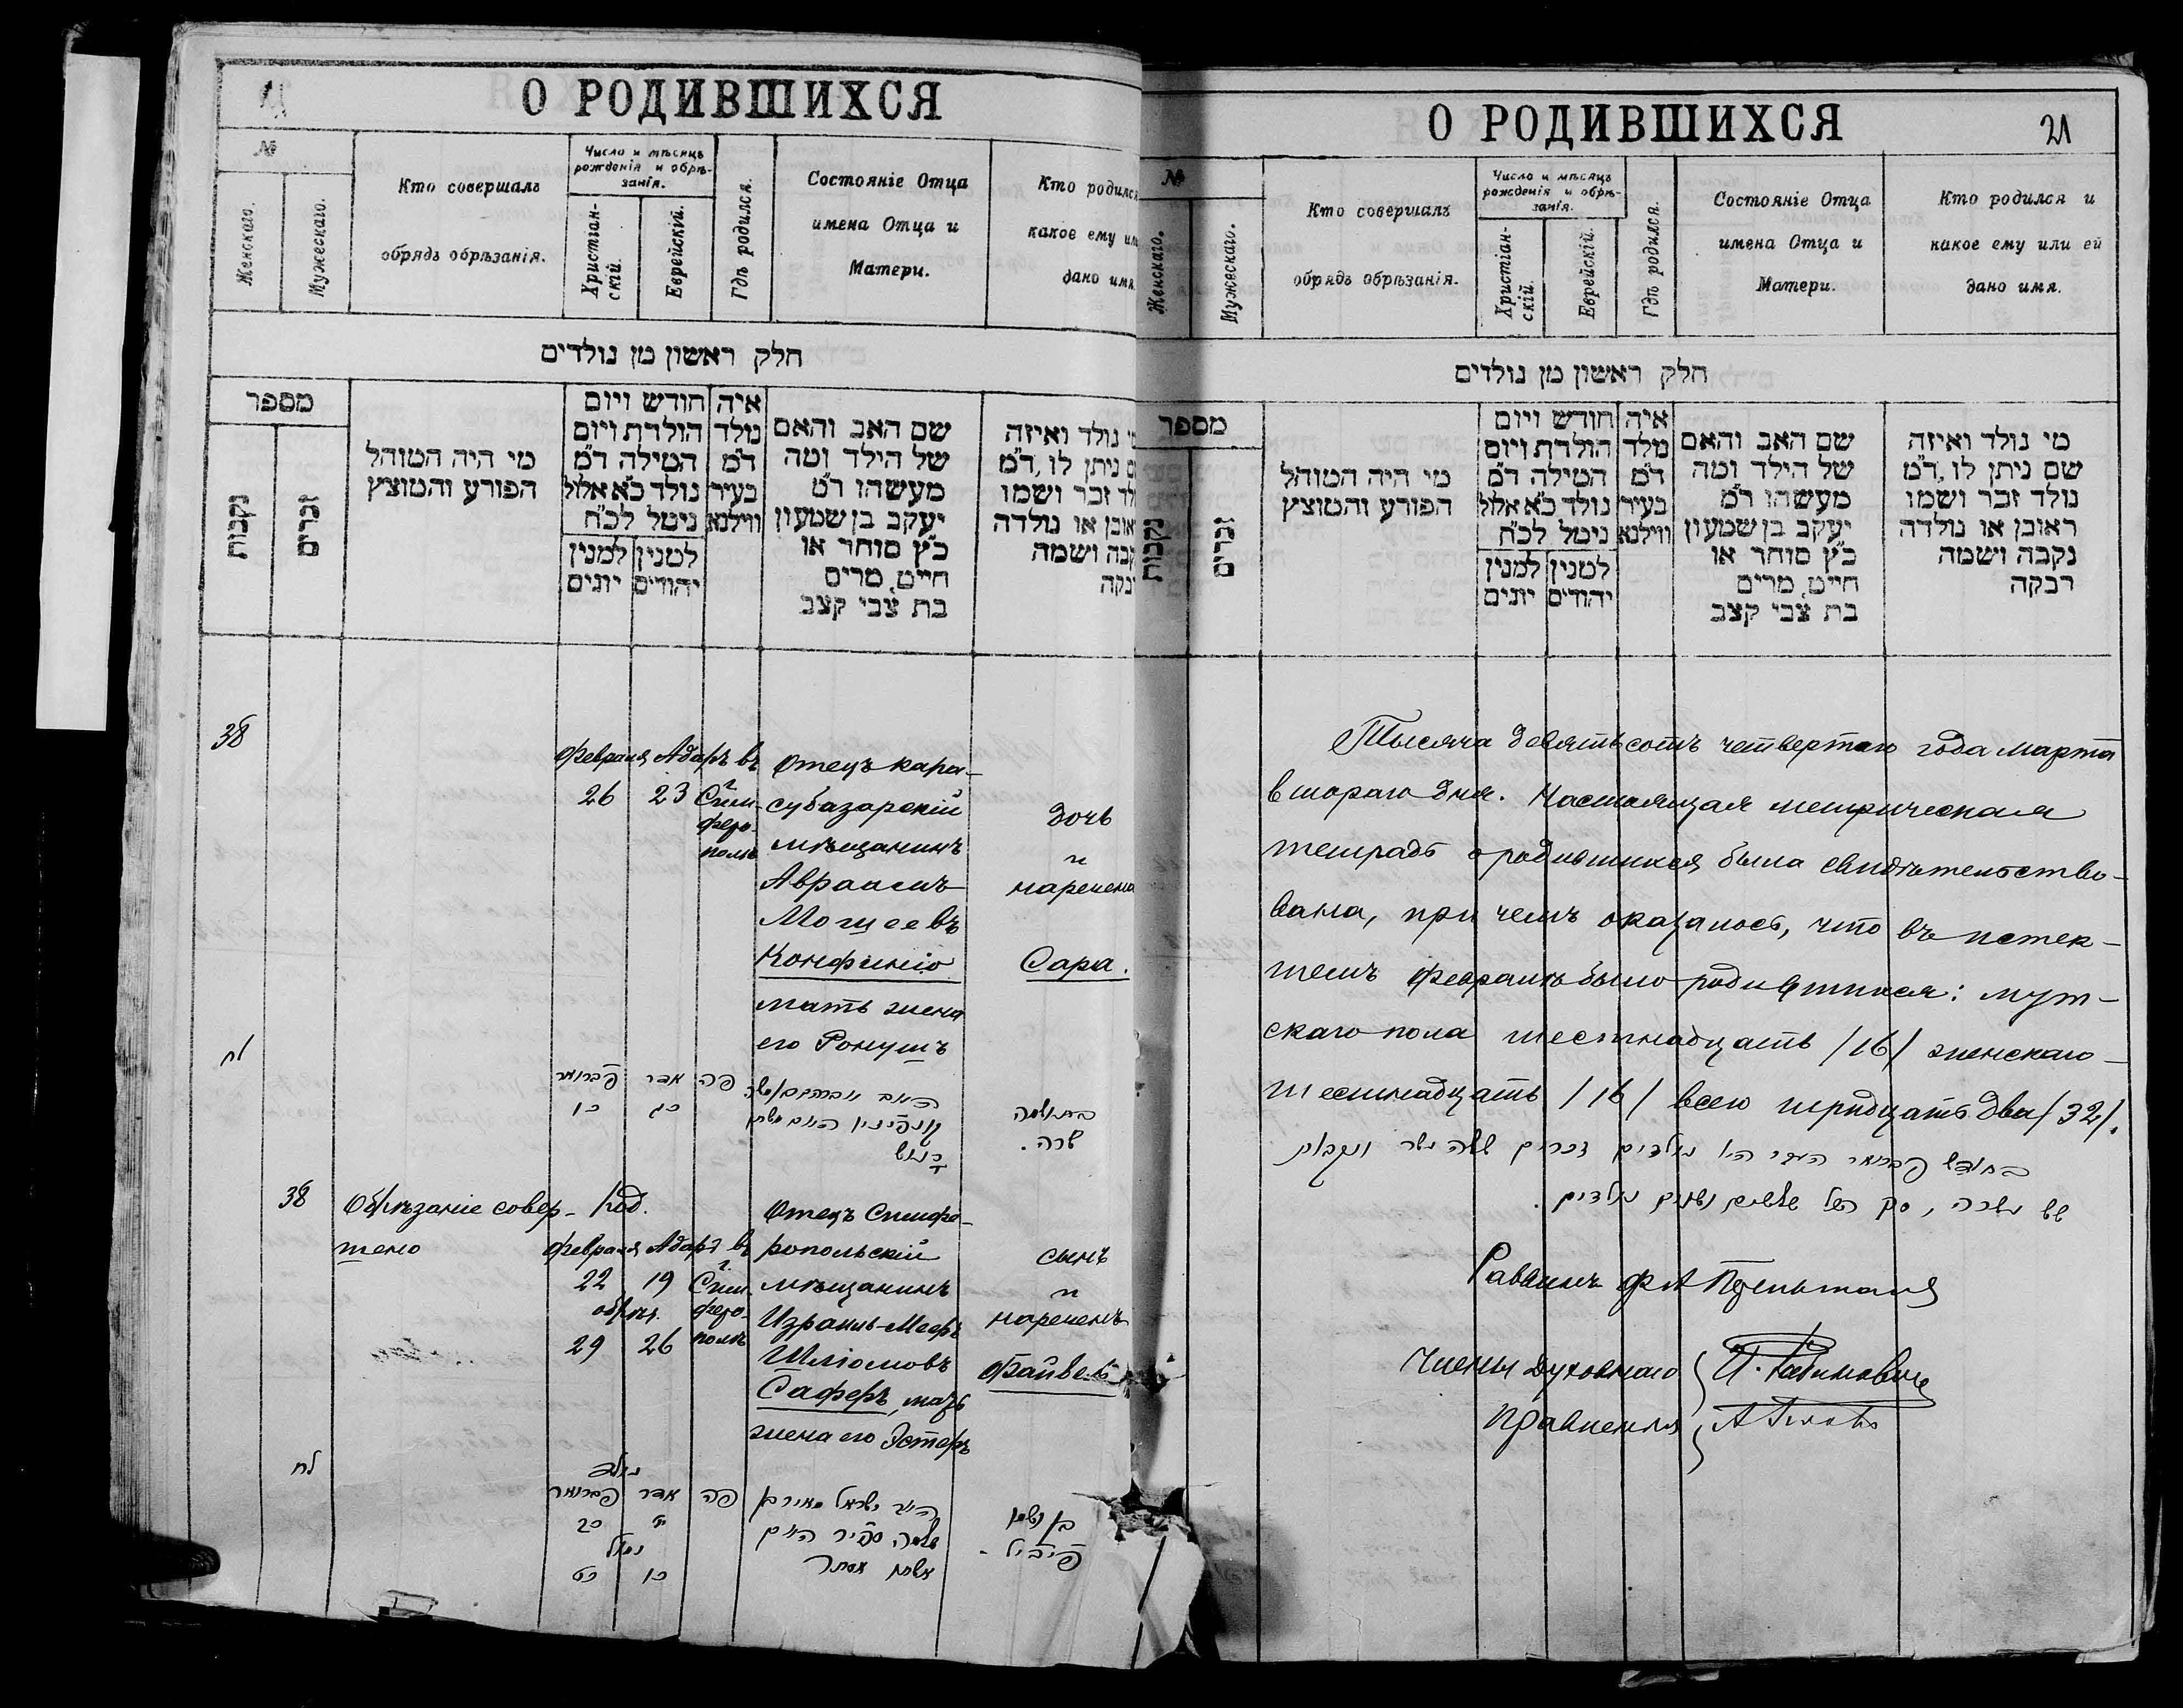 О РОДИВШИХСЯ
№
Женскаго.
Мужескаго.
Кто совершалъ
обрядъ обрѣзанія.
Число и мѣсяцъ
рожденія и обрѣ-
занія.
Христіан-
скій.
Еврейскій.
Гдѣ родился.
Состояніе Отца
имена Отца и
Матери.
Кто родился
какое ему или
дано имя.
חלק ראשון מן נולדים
מספר
נקבות
זכרים
מי היה המוהל
הפורע והמוצץ
חודש ויום
הולדת ויום
המילה ד״מ
נולד כ״א אלול
נימל לכ״ח
למנין יהודים
למנין יונים
איה
נולד
ד״מ
בעיר
ווילנא
שם האב והאם
של הילד ומה
מעשהו ד״מ
יעקב בן שמעון
כ״ץ סוחר או
חייט, מרים
בת צבי קצב
נולד ואיזה
ניתן לו, ד״מ
זכר ושמו
או נולדה
ושמה
38
Февраля Адаръ въ
26 23 г. Сим-
феро-
полѣ
Отецъ кара-
субазарскій
мѣщанинъ
Авраамъ
Мошеевъ
Конфиніо
мать жена
его Ронушъ
дочь
и
наречена
Сара.
לח
פברואר אדר פה
כו כג
שרה.
38
Обрѣзаніе совер-
шено
Род.
Февраля Адаръ въ
22 19 г. Сим-
феро-
полѣ
обрѣз.
29 26
Отецъ Симфе-
ропольскій
мѣщанинъ
Израиль-Мееръ
Шліомовъ
Саферъ, мать
жена его Эстеръ
сынъ
и
нареченъ
Файвель
לח
נולד
פברואר אדר פה
כב יט
נמול
כט כו
ישראל מאיר בן
שלמה ספיר האם
אשתו אסתר
בן ושמו
פייביל
О РОДИВШИХСЯ
21
№
Женскаго.
Мужескаго.
Кто совершалъ
обрядъ обрѣзанія.
Число и мѣсяцъ
рожденія и обрѣ-
занія.
Христіан-
скій.
Еврейскій.
Гдѣ родился.
Состояніе Отца
имена Отца и
Матери.
Кто родился и
какое ему или ей
дано имя.
חלק ראשון מן נולדים
מספר
נקבות
זכרים
מי היה המוהל
הפורע והמוצץ
חודש ויום
הולדת ויום
המילה ד״מ
נולד כ״א אלול
נימל לכ״ח
למנין יהודים
למנין יונים
איה
נולד
ד״מ
בעיר
ווילנא
שם האב והאם
של הילד ומה
מעשהו ד״מ
יעקב בן שמעון
כ״ץ סוחר או
חייט, מרים
בת צבי קצב
מי נולד ואיזה
שם ניתן לו, ד״מ
נולד זכר ושמו
ראובן או נולדה
נקבה ושמה
רבקה
Тысяча девятьсотъ четвертаго года марта
второго дня. Настоящая метрическая
тетрадь о родившихся была свидѣтельство-
вана, при чемъ оказалось, что въ истек-
шемъ февралѣ было родившихся: муж-
скаго пола шестнадцать /16/ женскаго
шестнадцать /16/ всего тридцать два /32/.
בחודש פברואר היו נולדים זכרים ששה עשר ונקבות
שש עשרה, סך הכל שלשים ושנים נולדים.
Раввинъ
Члены Духовнаго
Правленія